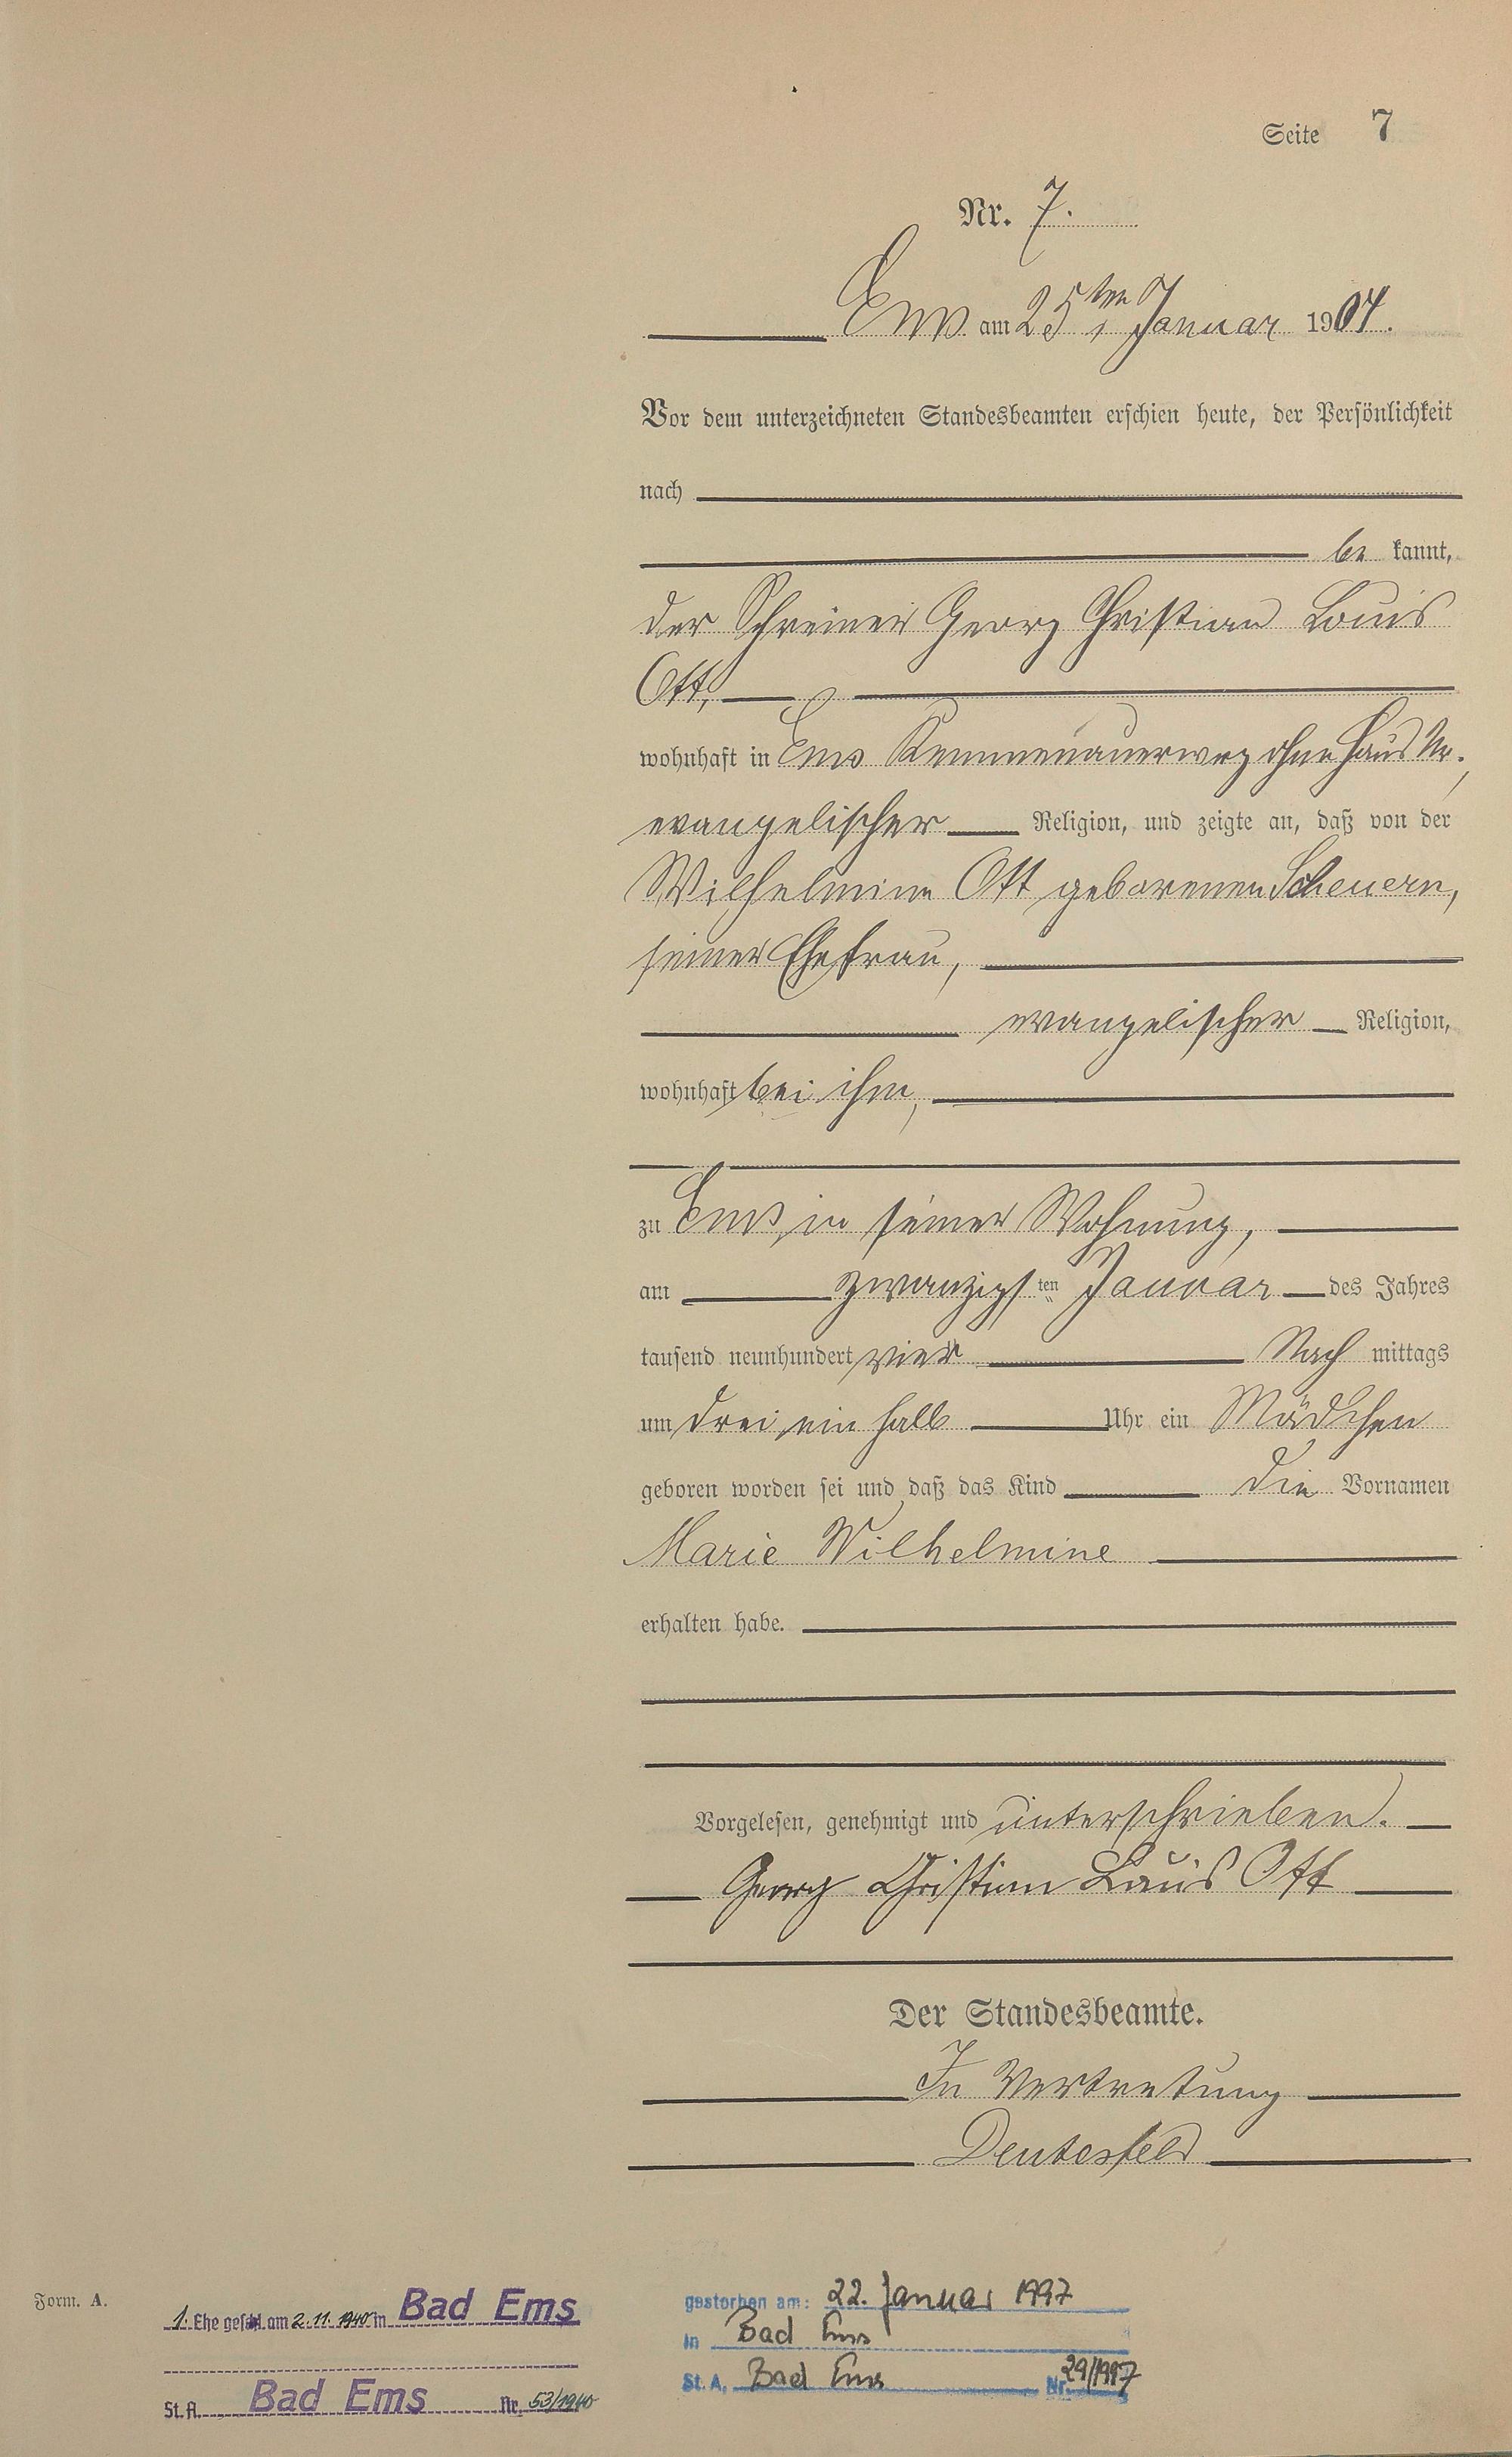 Seite 7
Nr. 7.
Ems am 25ten Januar 1904.
Vor dem unterzeichneten Standesbeamten erschien heute, der Persönlichkeit
nach
be kannt,
der Schreiner Georg Christian Louis
Ott,
wohnhaft in Ems Kemmenauerweg ohne Haus Nr.,
evangelischer Religion, und zeigte an, daß von der
Wilhelmine Ott geborenen Scheuern,
seiner Ehefrau,
evangelischer Religion,
wohnhaft bei ihm,
zu Ems, in seiner Wohnung,
am zwanzigsten Januar des Jahres
tausend neunhundert vier Nach mittags
um drei ein halb Uhr ein Mädchen
geboren worden sei und daß das Kind die Vornamen
Marie Wilhelmine
erhalten habe.
Vorgelesen, genehmigt und unterschrieben.
Georg Christian Louis Ott
Der Standesbeamte.
In Vertretung
Form. A.
1. Ehe geschl. am 2.11.1940 in Bad Ems
St. A. Bad Ems Nr. 53/1940
gestorben am: 22. Januar 1997
in Bad Ems
St. A. Bad Ems Nr. 29/1997